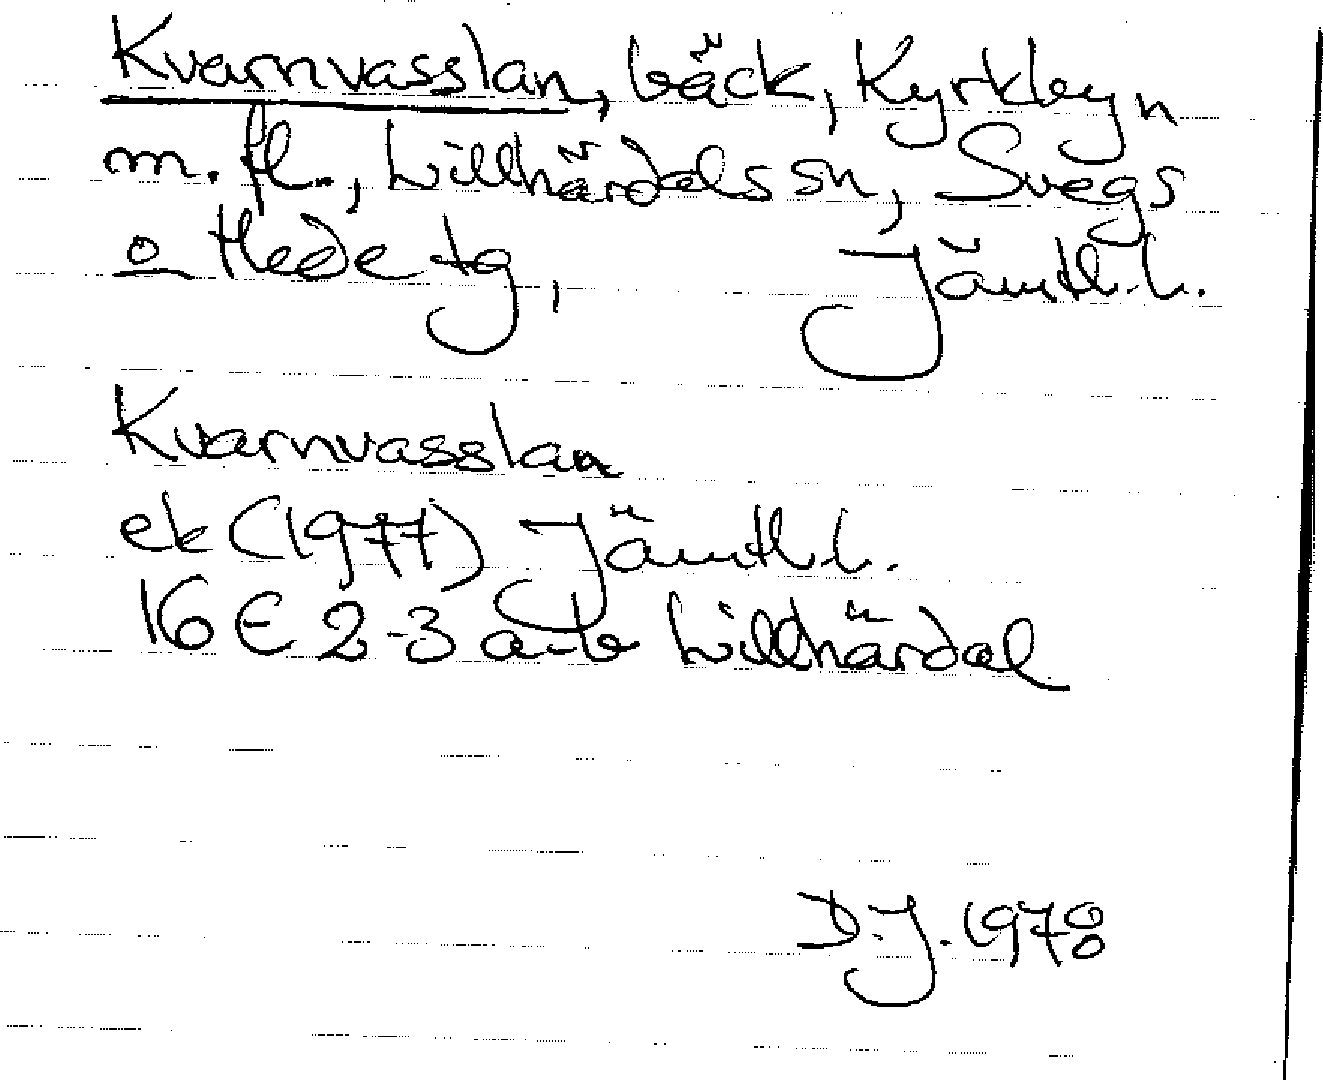 Kvarnvasslan, bäck, Kyrkbyn
m. fl., Lillhärdals sn, Svegs
o Hede tg, Jämtl. l.
Kvarnvasslan
ek (1977) Jämtl. l.
16 E 2-3 a-b Lillhärdal
D.J. 1978